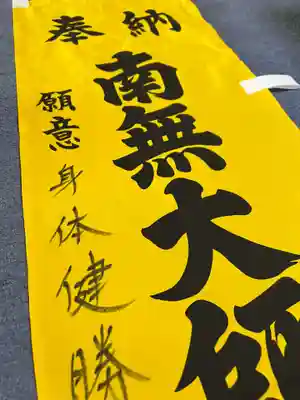 奉納
南無大師
願意 身体健勝